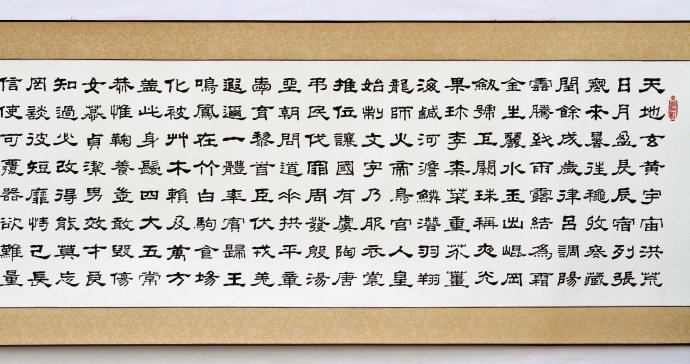 天地玄黃宇宙洪荒
日月盈昃辰宿列張
寒來暑往穐收冬藏
閏餘成歲律呂調陽
雲騰致雨露結為霜
金生麗水玉出崐岡
劍號巨闕珠稱夜光
果珍李柰菜重芥薑
海鹹河澹鱗潛羽翔
龍師火帝鳥官人皇
始制文字乃服衣裳
推位讓國有虞陶唐
弔民伐罪周發殷湯
坐朝問道垂拱平章
愛育黎首臣伏戎羌
遐邇一體率賓歸王
鳴鳳在竹白駒食場
化被艸木賴及萬方
蓋此身髮四大五常
恭惟鞠養豈敢毀傷
女慕貞潔男效才良
知過必改得能莫忘
罔談彼短靡恃己長
信使可覆器欲難量